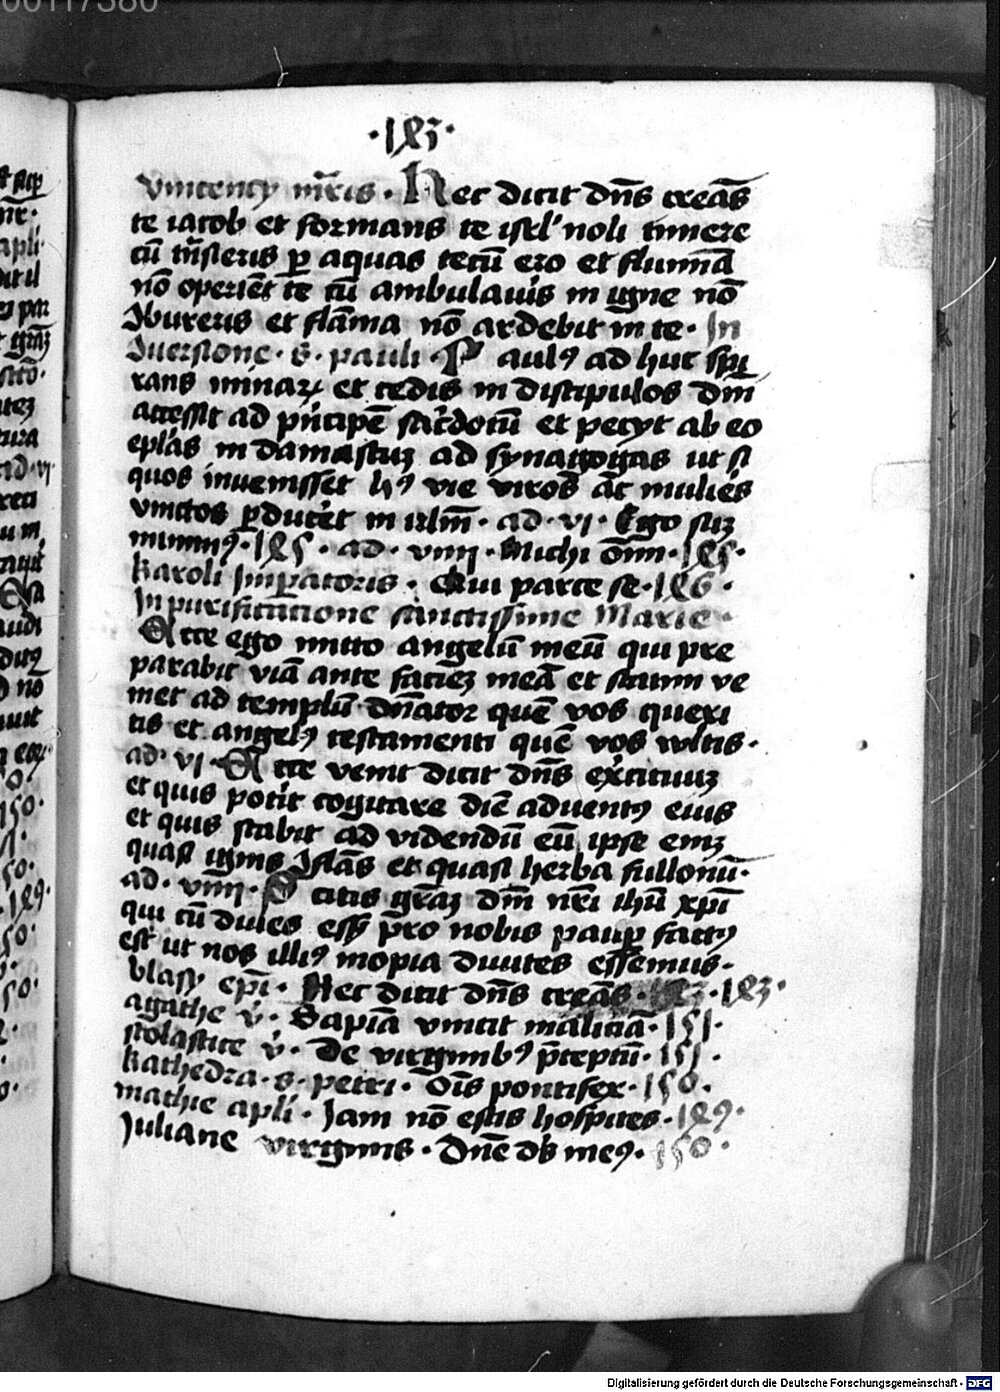 00117380
·183·
vincency mr̄is · Hec dicit dn̄s creās
te iacob et formans te isrl' noli timere
cū trn̄sieris p aquas tecū ero et flumīa
nō operiēt te cū ambulav'is in igne nō
ꝯbureris et flāma nō ardebit in te · In
ꝯversione · s · pauli · P aulꝰ ad huc spi
rans minaꝝ et cedis in discipulos dn̄i
accessit ad pn'cipē sac'dotū et petyt ab eo
eplās in damascuꝫ ad synagogas ut si
quos invenisset hꝰ vie viros āc mulie's
vinctos pduc'et in irlm̄ · ad · vi · Ego suꝫ
minimꝰ · 185 · ad · viiii · Michi om̄i · 185 ·
karoli Imp̄atoris · Qui parce se · 186 ·
In purificatione sanctissime Marie ·
Ecce ego mitto angelū meū qui pre
parabit viā ante facieꝫ meā et statim ve
niet ad templū dn̄ator quē vos queri
tis et angelꝰ testamenti quē vos vultis ·
ad · vi · Ecce venit dicit dn̄s ex'cituuꝫ
et quis pot'it cogitare diē adventꝰ eius
et quis stabit ad videndū eū ipse eniꝫ
quasi ignis ꝯflās et quasi herba fullonū ·
ad · viiii · S citis grāꝫ dn̄i nr̄i ihū xp̄i
qui cū dives ess; p̄ro nobis paup factꝰ
est ut nos illiꝰ inopia divites essemus ·
blasy ep̄i · Hec dicit dn̄s creās · 183 ·
agathe v̄ · Sapīa vincit maliciā · 151 ·
scolastice v̄ · De virginibꝰ p̄ceptū · 151 ·
kathedra · s · petri · Oīs pontifex · 150 ·
mathie apli · Jam nō estis hospites · 189 ·
Juliane virginis · Dn̄e ds meꝰ · 150 ·
Digitalisierung gefördert durch die Deutsche Forschungsgemeinschaft - DFG